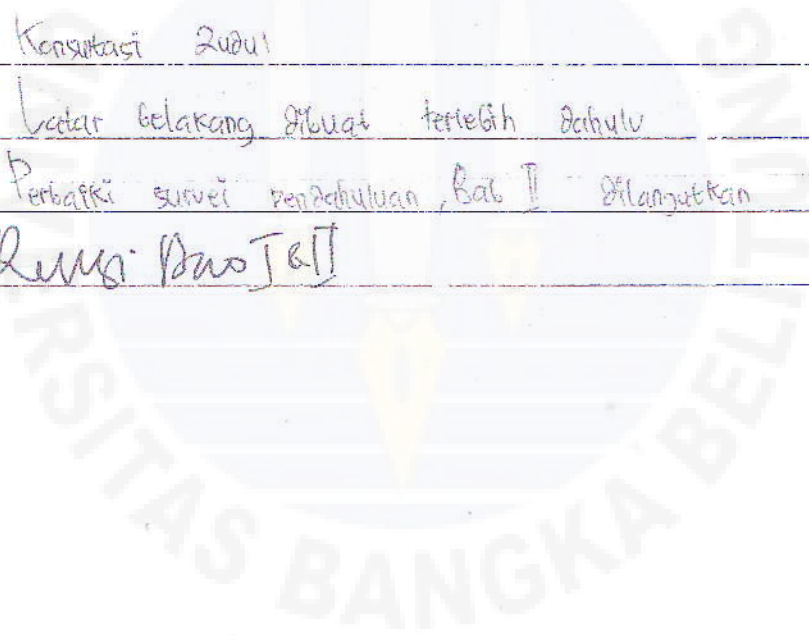 Konsultasi Judul
Latar belakang dibuat terlebih dahulu
Perbaiki survei pendahuluan, Bab II dilanjutkan
Revisi Bab I & II
UNIVERSITAS BANGKA BELITUNG